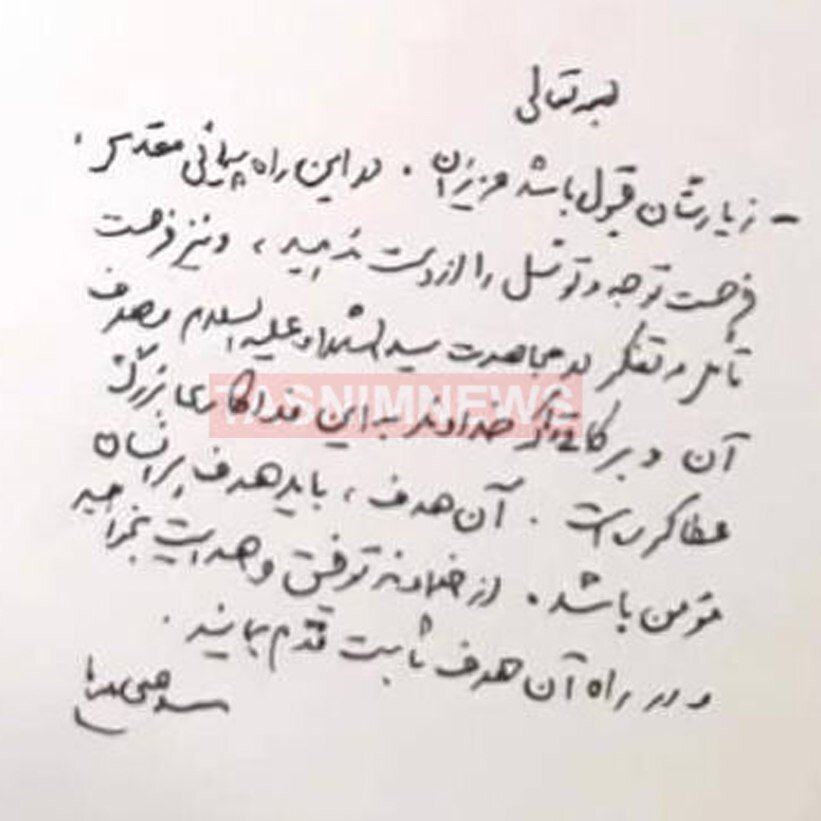 بسمه تعالی
- زیارتتان قبول باشد عزیزان. در این راه پیمائی مقدس،
فرصت توجه و توسل را از دست ندهید، و نیز فرصت
تأمل و تفکر در مجاهدت سیدالشهداء علیه السلام و هدف
آن و برکاتی که خداوند به این فداکاری بزرگ
TASNIMNEWS
عطا کرده است. آن هدف، باید هدف هر انسان
مؤمن باشد. از خداوند توفیق و هدایت بخواهید
و در راه آن هدف ثابت قدم بمانید.